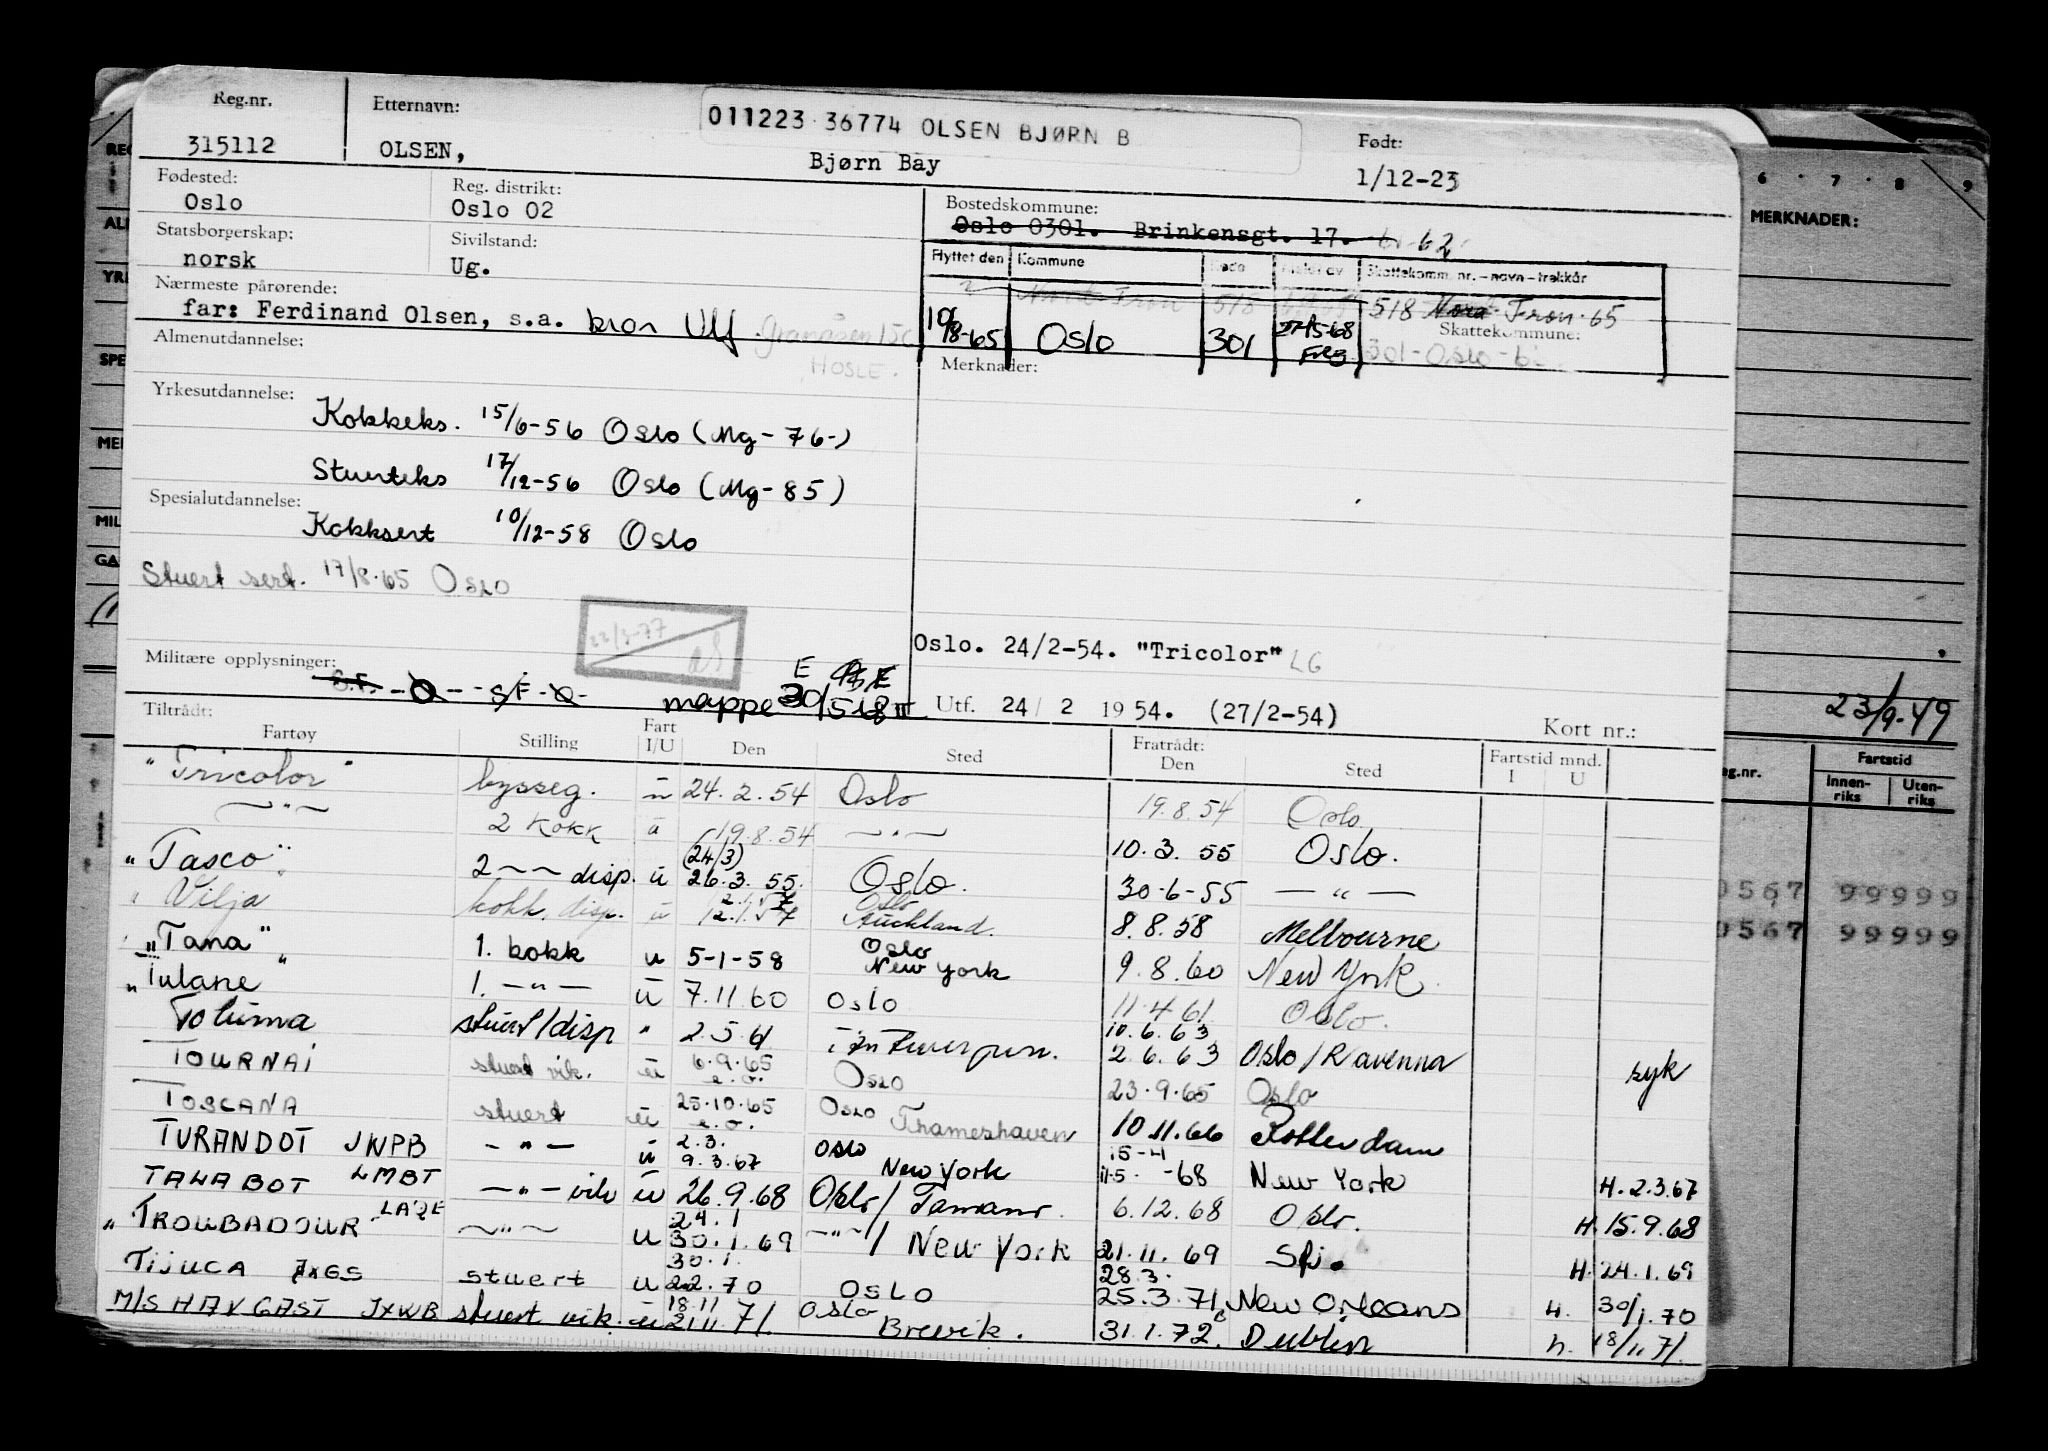 Reg.nr. Etternavn: 011223 36774 OLSEN BJØRN B Født:
315112 OLSEN, Bjørn Bay 1/12-23
Fødested: Reg. distrikt: Bostedskommune:
Oslo Oslo 02 Oslo 0301. Brinkensgt. 17. 62
Statsborgerskap: Sivilstand: Flyttet den Kommune
norsk Ug. Skattekomm. nr. - navn - trekkår
Nærmeste pårørende: 518 Fron 65
far: Ferdinand Olsen, s.a. bror Ulf 10/8-65 Oslo 301 27/5-68 Skattekommune:
HOSLE. 301-Oslo
Almenutdannelse: Merknader:
Yrkesutdannelse:
Kokkeks. 15/6-56 Oslo (Mg-76-)
Stuerteks 17/12-56 Oslo (Mg-85)
Spesialutdannelse:
Kokksert 10/12-58 Oslo
Stuert sert. 17/8.65 Oslo
Oslo. 24/2-54. "Tricolor" LG
Militære opplysninger:
mappe Utf. 24/2 1954. (27/2-54) Kort nr.:
Tiltrådt: Fratrådt:
Fartøy Stilling Fart I/U Den Sted Den Sted Fartstid mnd. I U
"Tricolor" bysseg. u 24.2.54 Oslo 19.8.54 Oslo
—"— 2 kokk u 19.8.54 —"— 10.3.55 Oslo.
"Tasco" 2 —— disp. u (24/3) 26.3.55. Oslo. 30-6-55 —"—
"Vilja kokk. disp. u 12.1.57 Oslo Auckland. 8.8.58 Melbourne
"Tana" 1. kokk u 5-1-58 Oslo New York 9.8.60 New York.
"Tulane" 1. —"— u 7.11.60 Oslo 11.4.61 Oslo.
Toluma stuert/disp " 2.5.61 i Antwerpen. 10.6.63 2.6.63 Oslo/Ravenna syk
TOURNAI stuert vik. u 6.9.65 Oslo 23.9.65 Oslo
TOSCANA stuert u 25.10.65 Oslo Thameshaven 10.11.66 Rotterdam
TURANDOT JWPB —"— u 2.3. 9.3.67 Oslo New York 15-4 11.5.-68 New York H. 2.3.67
TALABOT LMBT —"— vik u 26.9.68 Oslo/ 6.12.68 Oslo. H. 15.9.68
"TROUBADOUR" —"— u 24.1 30.1.69 —"—/ New York 21.11.69 H. 24.1.69
TIJUCA stuert u 30.1. 2.2.70 OSLO 28.3. 25.3.71 New Orleans H. 30/1.70
M/S HAVGAST JXWB stuert vik. u 18.11 21.11.71. Oslo Brevik. 31.1.72. Dublin h. 18/11 71.
6 7 8 9
MERKNADER:
23/9-49
Fartstid
Innen-riks Uten-riks
0567 99999
9567 99999